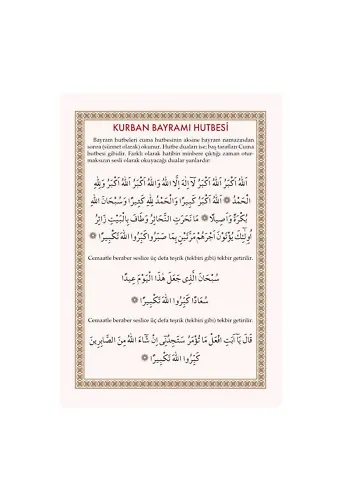 KURBAN BAYRAMI HUTBESİ
Bayram hutbeleri cuma hutbesinin aksine bayram namazından
sonra (sünnet olarak) okunur. Hutbe duaları ise, baş tarafları Cuma
hutbesi gibidir. Farklı olarak hatibin minbere çıktığı zaman otur-
maksızın sesli olarak okuyacağı dualar şunlardır:
اَللّٰهُ اَكْبَرُ اَللّٰهُ اَكْبَرُ لَا اِلٰهَ اِلَّا اللّٰهُ وَاللّٰهُ اَكْبَرُ اَللّٰهُ اَكْبَرُ وَلِلّٰهِ
الْحَمْدُ ۞ اَللّٰهُ اَكْبَرُ كَبِيرًا وَالْحَمْدُ لِلّٰهِ كَثِيرًا وَسُبْحَانَ اللّٰهِ
بُكْرَةً وَاَصِيلًا ۞ مَا نَحَرَتِ النَّحَائِرُ وَطَافَ بِالْبَيْتِ زَائِرٌ
اُولٰئِكَ يُؤْتَوْنَ اَجْرَهُمْ مَرَّتَيْنِ بِمَا صَبَرُوا كَبِّرُوا اللّٰهَ تَكْبِيرًا ۞
Cemaatle beraber seslice üç defa teşrik (tekbiri gibi) tekbir getirilir.
سُبْحَانَ الَّذِى جَعَلَ هٰذَا الْيَوْمَ عِيدًا
سُعَادًا كَبِّرُوا اللّٰهَ تَكْبِيرًا ۞
Cemaatle beraber seslice üç defa teşrik (tekbiri gibi) tekbir getirilir.
قَالَ يَا اَبَتِ افْعَلْ مَا تُؤْمَرُ سَتَجِدُنِى اِنْ شَاءَ اللّٰهُ مِنَ الصَّابِرِينَ
كَبِّرُوا اللّٰهَ تَكْبِيرًا ۞